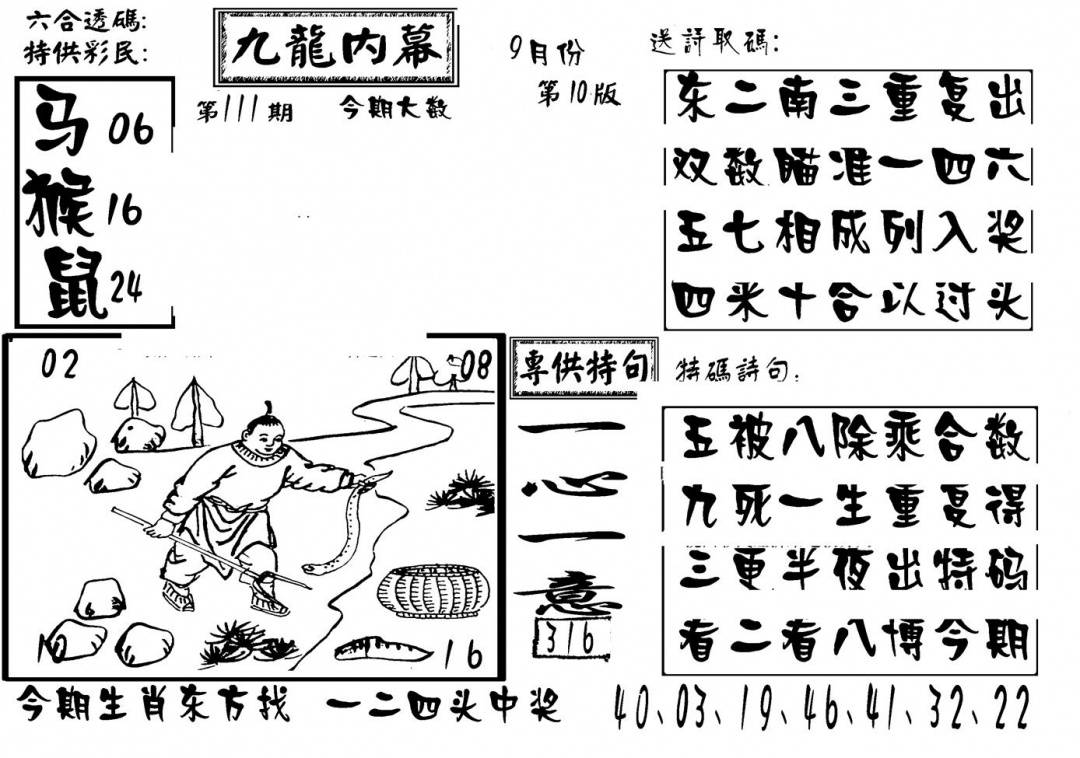 六合透碼:
特供彩民:
九龍内幕
9月份
第10版
第111期
今期大数
马 06
猴 16
鼠 24
送詩取碼:
东二南三重复出
双数瞄准一四六
五七相成列入奖
四米十合以过头
02
08
10
16
專供特句
一心一意
316
特碼詩句:
五被八除乘合数
九死一生重复得
三更半夜出特码
看二看八博今期
今期生肖东方找 一二四头中奖 40、03、19、46、41、32、22